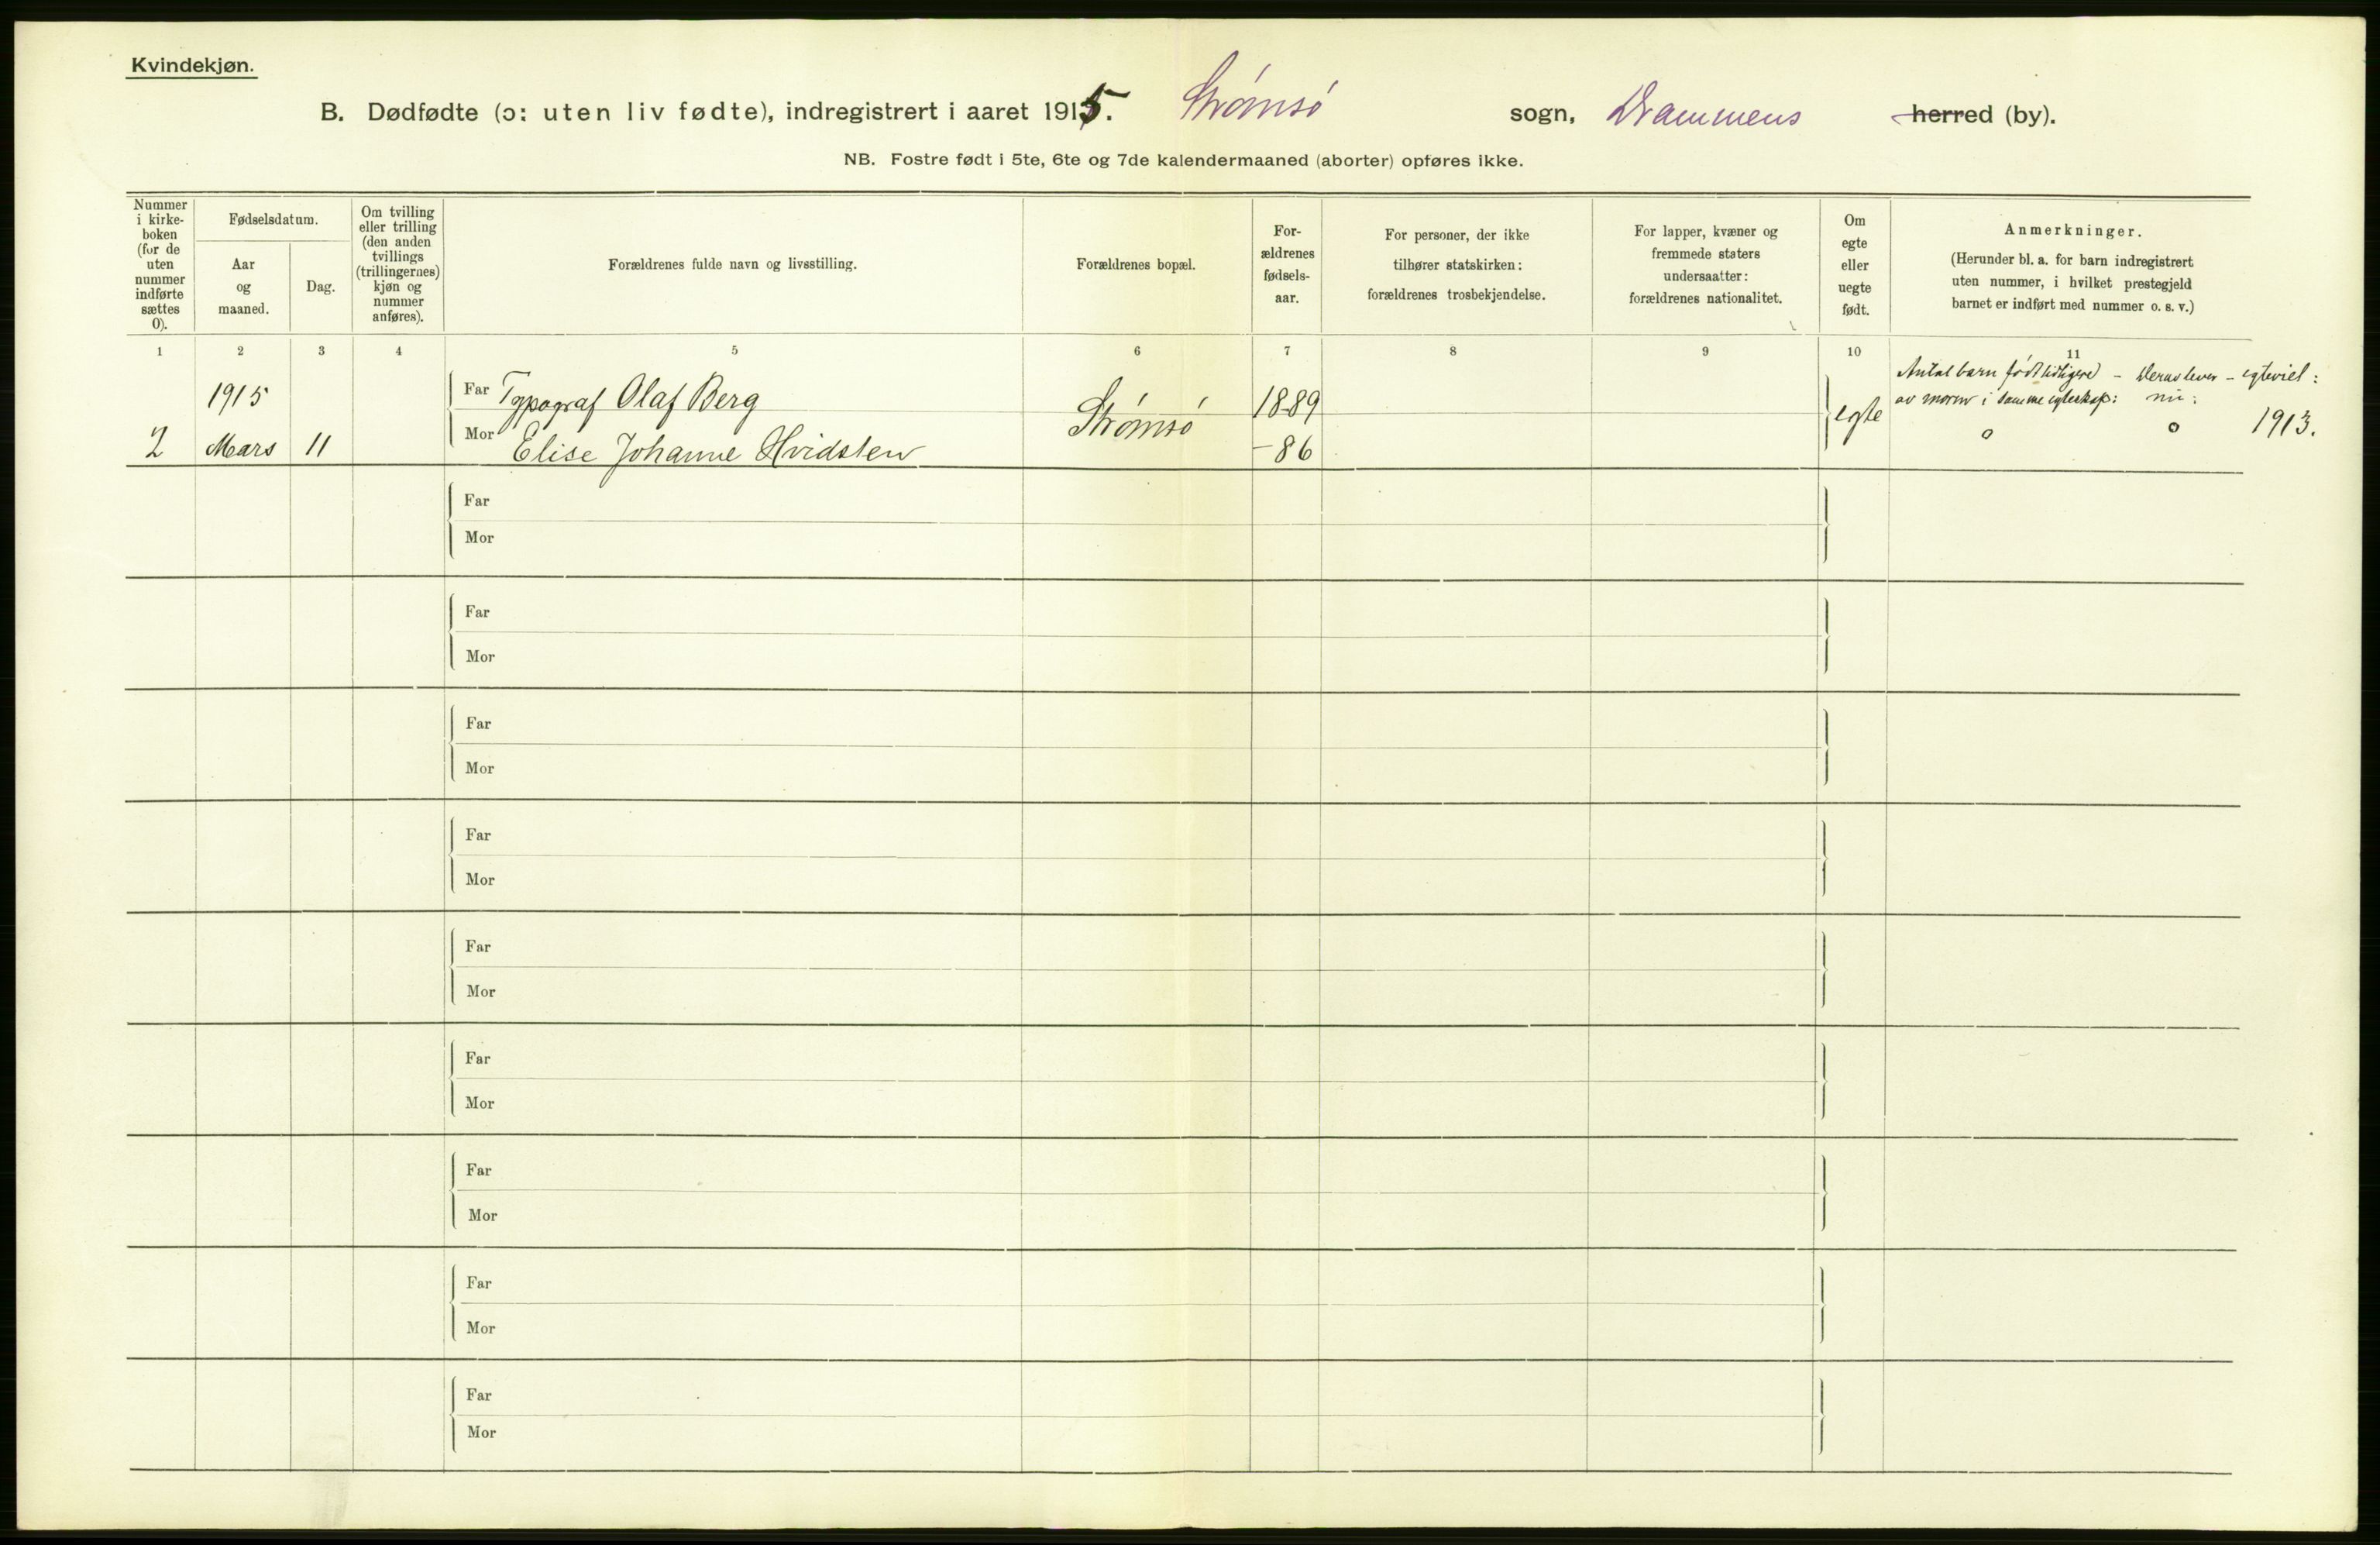 Kvindekjøn.
B. Dødfødte (ɔ: uten liv fødte), indregistrert i aaret 1915. Strømsø sogn, Drammens herred (by).
NB. Fostre født i 5te, 6te og 7de kalendermaaned (aborter) opføres ikke.
Nummer
i kirke-
boken
(for de
uten
nummer
indførte
sættes
0).
Fødselsdatum.
Aar
og
maaned.
Dag.
Om tvilling
eller trilling
(den anden
tvillings
(trillingernes)
kjøn og
nummer
anføres).
Forældrenes fulde navn og livsstilling.
Forældrenes bopæl.
For-
ældrenes
fødsels-
aar.
For personer, der ikke
tilhører statskirken:
forældrenes trosbekjendelse.
For lapper, kvæner og
fremmede staters
undersaatter:
forældrenes nationalitet.
Om
egte
eller
uegte
født.
Anmerkninger.
(Herunder bl. a. for barn indregistrert
uten nummer, i hvilket prestegjeld
barnet er indført med nummer o. s. v.)
1 2 3 4 5 6 7 8 9 10 11
Antal barn født tidligere - Derav lever - egteviet:
av moren i samme egteskap: nu:
1915 Far Typograf Olaf Berg Strømsø 1889 egte o o 1913.
2 Mars 11 Mor Elise Johanne Hvidsten -86
Far
Mor
Far
Mor
Far
Mor
Far
Mor
Far
Mor
Far
Mor
Far
Mor
Far
Mor
Far
Mor